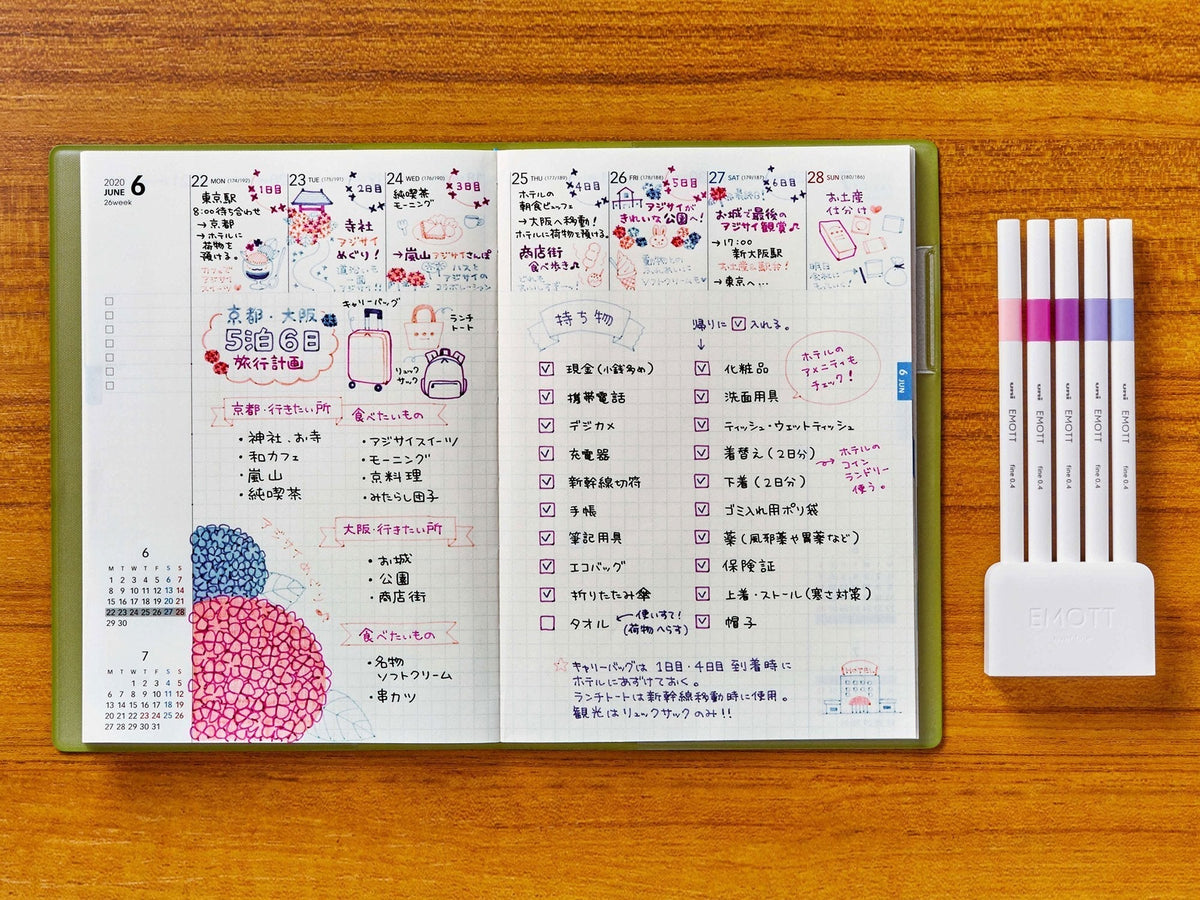 2020
JUNE
26week
6
22 MON (174/192)
1日目
東京駅
8:00待ち合わせ
→京都
→ホテルに
荷物を
預ける。
23 TUE (175/191)
2日目
寺社
アジサイ
めぐり!
24 WED (176/190)
3日目
純喫茶
モーニング
→嵐山アジサイさんぽ
ハスと
アジサイの
コラボレーション
京都・大阪
5泊6日
旅行計画
キャリーバッグ
ランチ
トート
リュック
サック
京都・行きたい所
・神社、お寺
・和カフェ
・嵐山
・純喫茶
食べたいもの
・アジサイスイーツ
・モーニング
・京料理
・みたらし団子
大阪・行きたい所
・お城
・公園
・商店街
食べたいもの
・名物
ソフトクリーム
・串カツ
6
M T W T F S S
1 2 3 4 5 6 7
8 9 10 11 12 13 14
15 16 17 18 19 20 21
22 23 24 25 26 27 28
29 30
7
M T W T F S S
1 2 3 4 5
6 7 8 9 10 11 12
13 14 15 16 17 18 19
20 21 22 23 24 25 26
27 28 29 30 31
25 THU (177/189)
4日目
ホテルの
朝食ビュッフェ
→大阪へ移動!
ホテルに荷物を預ける。
商店街
食べ歩き♪
26 FRI (178/188)
5日目
アジサイが
きれいな公園へ!
ソフトクリームも
27 SAT (179/187)
6日目
お城で最後の
アジサイ観賞♪
→17:00
新大阪駅
→東京へ...
28 SUN (180/186)
お土産
仕分け
持ち物
帰りに☑入れる。
↓
☑ 現金(小銭多め)
☑ 携帯電話
☑ デジカメ
☑ 充電器
☑ 新幹線切符
☑ 手帳
☑ 筆記用具
☑ エコバッグ
☑ 折りたたみ傘
☐ タオル
←使いすて!
(荷物へらす)
☑ 化粧品
☑ 洗面用具
☑ ティッシュ・ウェットティッシュ
☑ 着替え(2日分)
☑ 下着(2日分)
☑ ゴミ入れ用ポリ袋
☑ 薬(風邪薬や胃薬など)
☑ 保険証
☑ 上着・ストール(寒さ対策)
☑ 帽子
ホテルの
アメニティも
チェック!
ホテルの
コイン
ランドリー
使う。
☆キャリーバッグは 1日目・4日目 到着時に
ホテルにあずけておく。
ランチトートは新幹線移動時に使用。
観光はリュックサックのみ!!
HOTEL
6 JUN
uni EMOTT fine 0.4
uni EMOTT fine 0.4
uni EMOTT fine 0.4
uni EMOTT fine 0.4
uni EMOTT fine 0.4
EMOTT